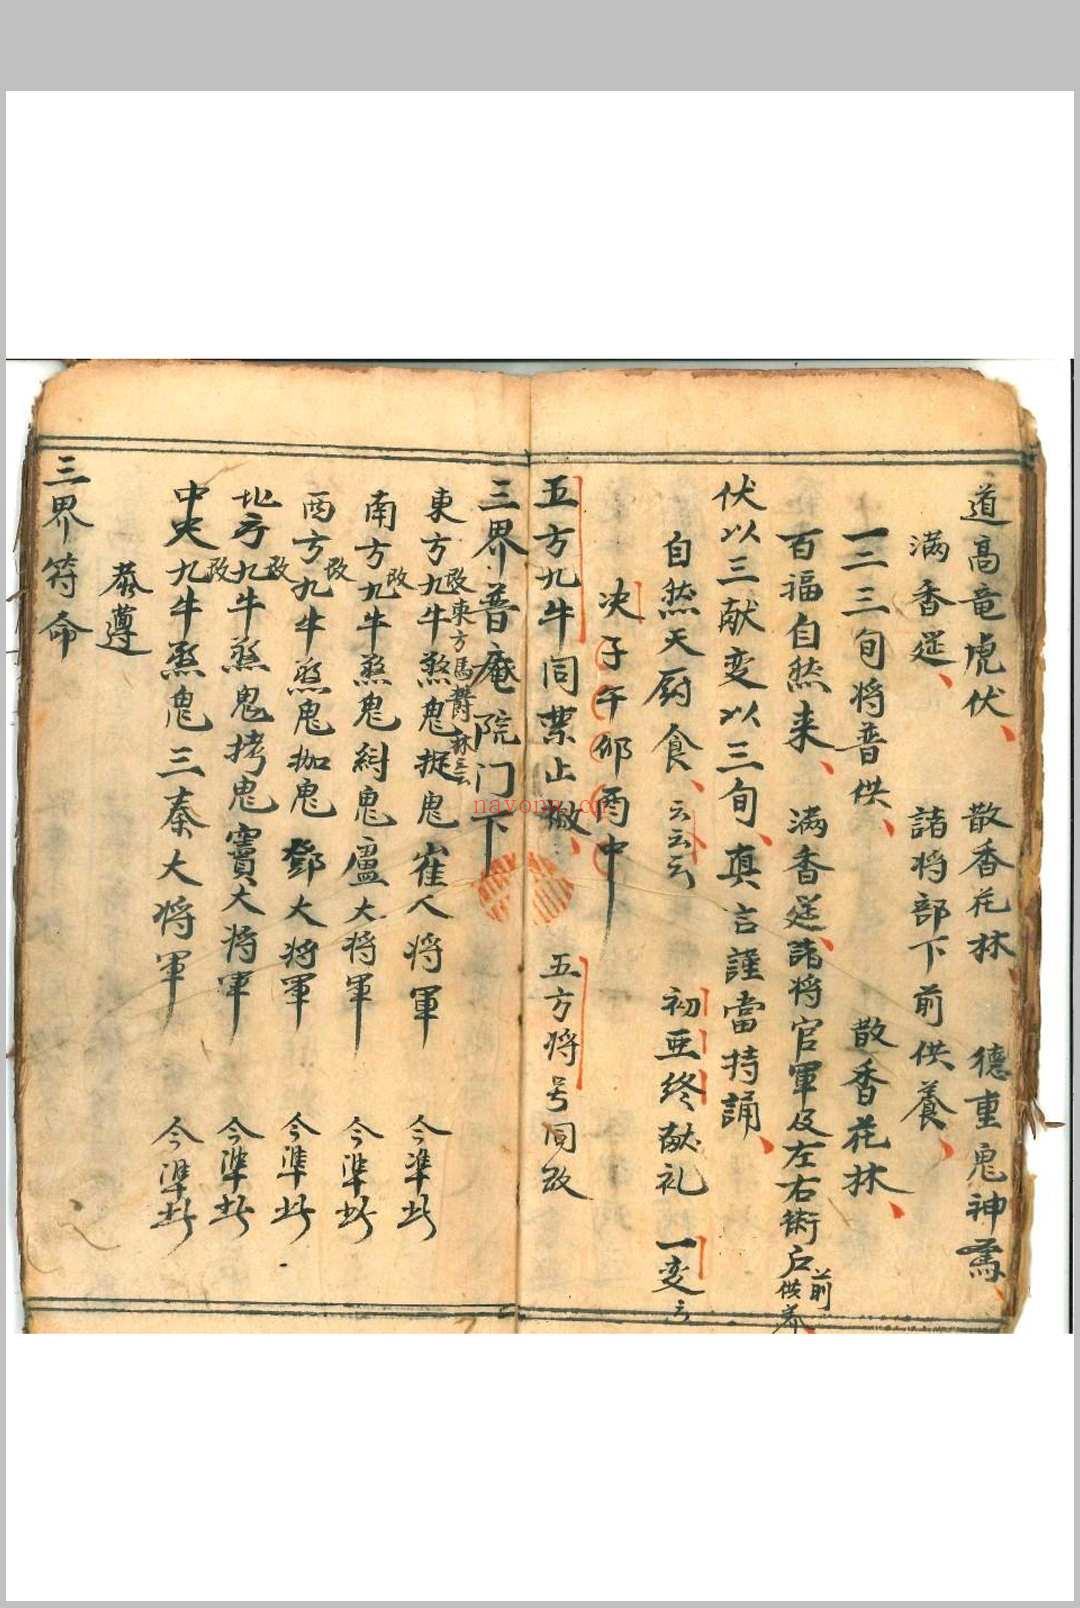 道高竜虎伏、 散香花林、 德重鬼神驚、
满香筵、 諸将部下前供養、
一二三旬将普供、 散香花林、
百福自然来、 满香筵、諸将官軍及左右術戶前供养、
伏以三献变以三旬、真言謹當持誦、
自然天厨食、云云云 初亜終献礼 一变云
决子午卯酉中
五方九牛同業止檄、 五方将号同改
三界普庵院门下
東方九牛煞鬼捉鬼崔人将軍 今準此
改東方馬 林云云
南方九牛煞鬼紂鬼盧大将軍 今準此
改
西方九牛煞鬼枷鬼鄧大将軍 今準此
改
北方九牛煞鬼拷鬼竇大将軍 今準此
改
中央九牛煞鬼三秦大将軍 今準此
改
恭遵
三界符命
nayona.cn